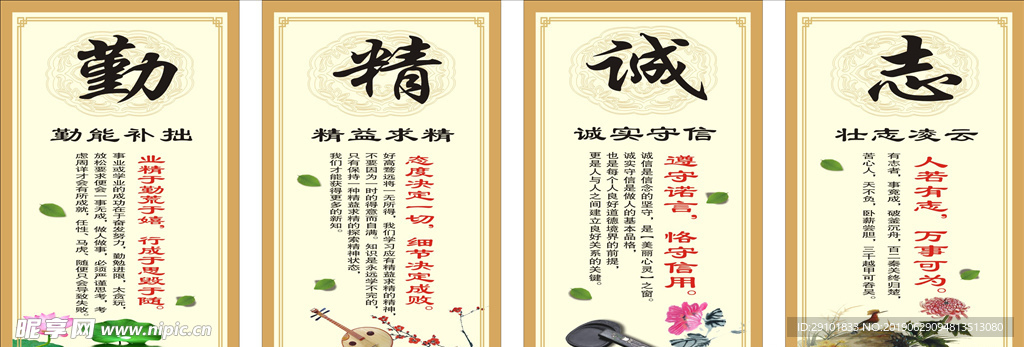 勤
勤能补拙
业精于勤荒于嬉，行成于思毁于随。
事业或学业的成功在于奋发努力，勤勉进限，太贪玩，
放松要求便会一事无成，做人做事，必须严谨思考，考
虑周详才会有所成就，任性、马虎、随便只会导致失败。
精
精益求精
态度决定一切，细节决定成败。
好高骛远将一无所得，我们学习应有精益求精的精神，
不要因为一时的得意而自满。知识是永远学不完的，
只有保持一种精益求精的探索精神状态，
我们才能获得更多的新知。
诚
诚实守信
遵守诺言，恪守信用。
诚信是信念的坚守，是【美丽心灵】之窗。
诚实守信是做人的基本品格，
也是每个人良好道德境界的前提，
更是人与人之间建立良好关系的关键。
志
壮志凌云
人若有志，万事可为。
有志者，事竟成，破釜沉舟，百二秦关终归楚，
苦心人，天不负，卧薪尝胆，三千越甲可吞吴。
昵享网 www.nipic.cn
ID:29101833 NO:20190629094813513080